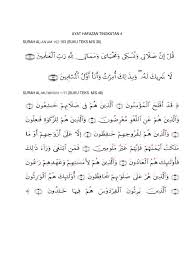 AYAT HAFAZAN TINGKATAN 4
SURAH AL-AN'AM 162-163 (BUKU TEKS M/S
قُلْ إِنَّ صَلَاتِي وَنُسُكِي وَمَحْيَايَ وَمَمَاتِي لِلَّهِ رَبِّ الْعَالَمِينَ
لَا شَرِيكَ لَهُ وَبِذَلِكَ أُمِرْتُ وَأَنَا أَوَّلُ الْمُسْلِمِينَ
SURAH AL-MU'MINUN 1-11 (BUKU TEKS M/S
قَدْ أَفْلَحَ الْمُؤْمِنُونَ الَّذِينَ هُمْ فِي صَلَاتِهِمْ خَاشِعُونَ
وَالَّذِينَ هُمْ عَنِ اللَّغْوِ مُعْرِضُونَ وَالَّذِينَ هُمْ لِلزَّكَاةِ فَاعِلُونَ
وَالَّذِينَ هُمْ لِفُرُوجِهِمْ حَافِظُونَ إِلَّا عَلَى أَزْوَاجِهِمْ أَوْ مَا
مَلَكَتْ أَيْمَانُهُمْ فَإِنَّهُمْ غَيْرُ مَلُومِينَ فَمَنِ ابْتَغَى وَرَاءَ ذَلِكَ
فَأُولَئِكَ هُمُ الْعَادُونَ وَالَّذِينَ هُمْ لِأَمَانَاتِهِمْ وَعَهْدِهِمْ رَاعُونَ
وَالَّذِينَ هُمْ عَلَى صَلَوَاتِهِمْ يُحَافِظُونَ أُولَئِكَ هُمُ الْوَارِثُونَ
الَّذِينَ يَرِثُونَ الْفِرْدَوْسَ هُمْ فِيهَا خَالِدُونَ